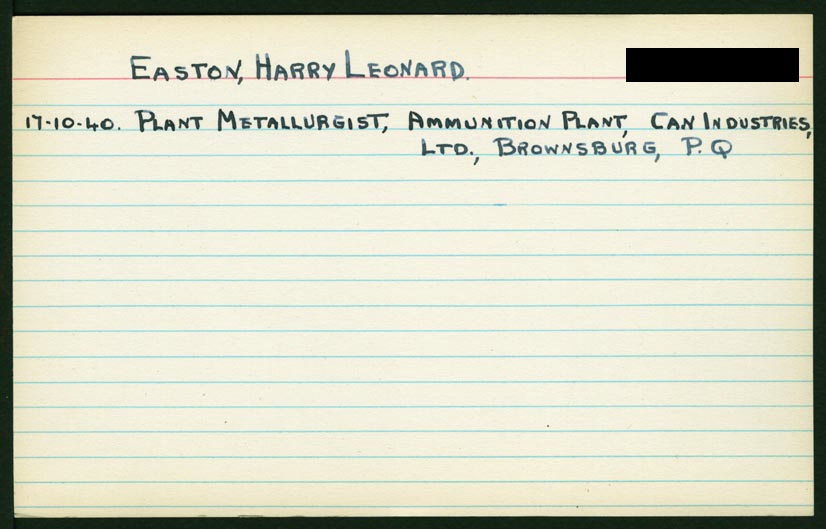 EASTON, HARRY LEONARD.
17-10-40. PLANT METALLURGIST, AMMUNITION PLANT, CAN INDUSTRIES,
LTD., BROWNSBURG, P.Q